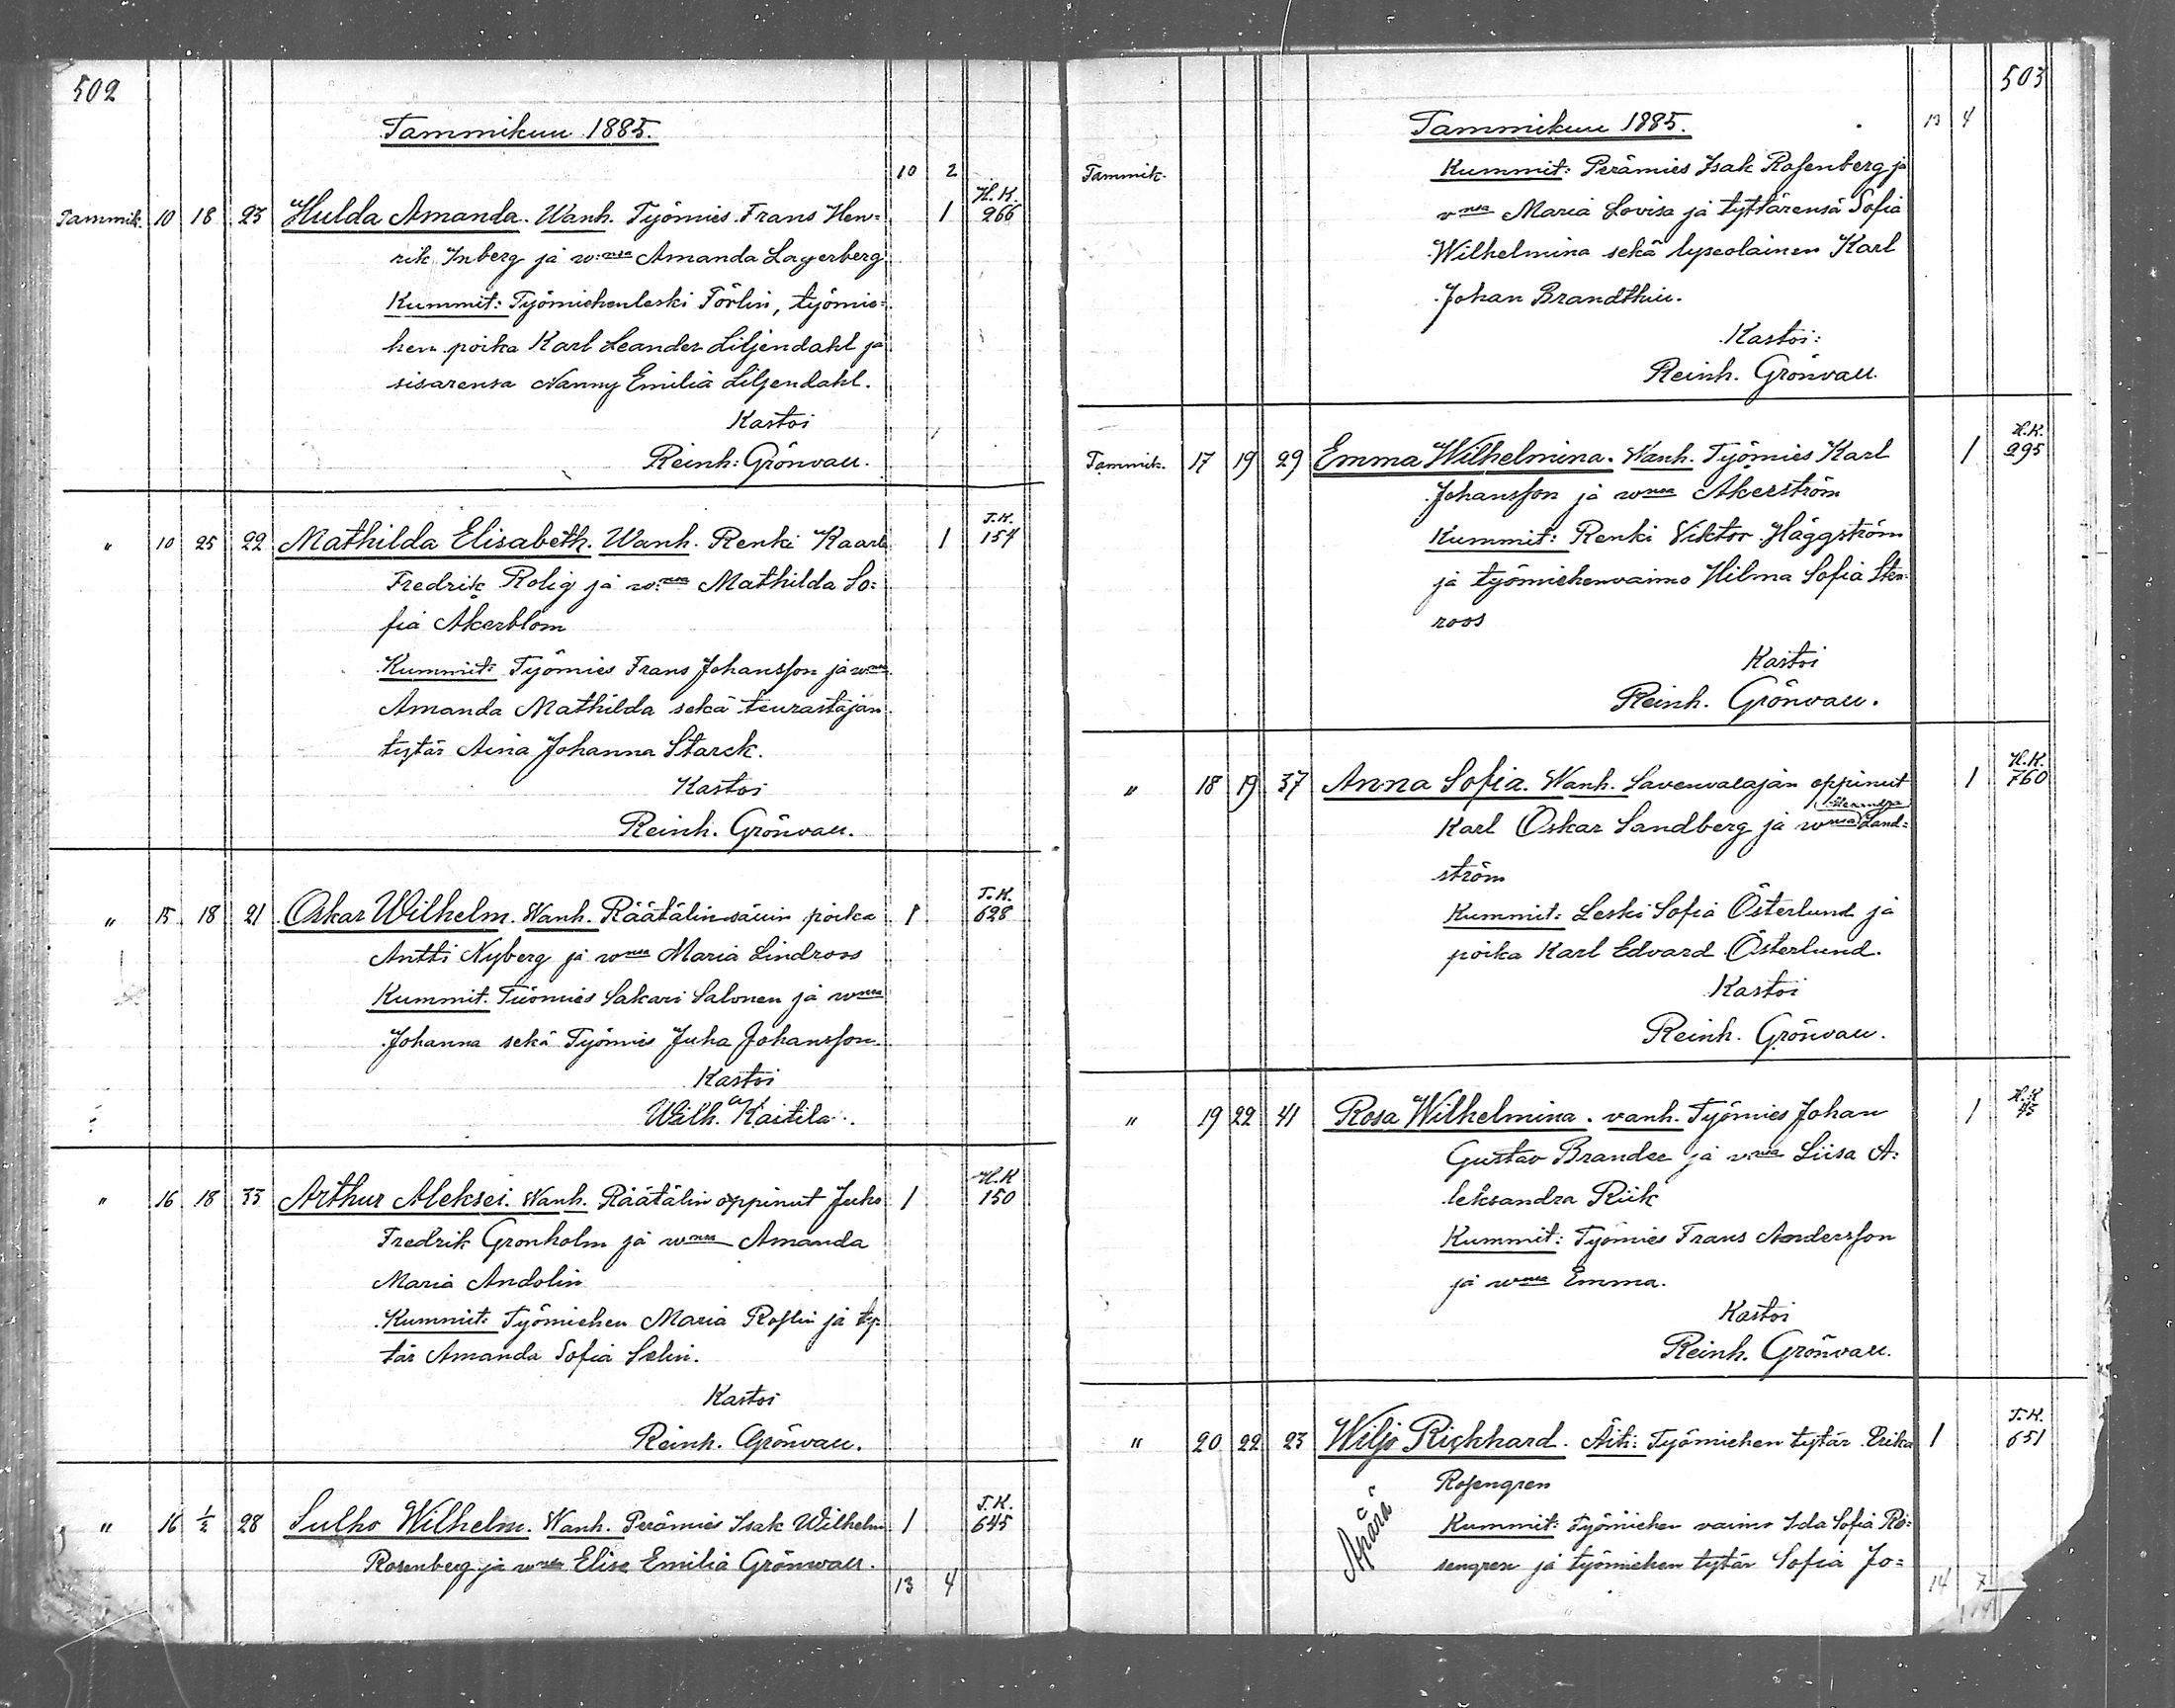 502
Tammikuu 1885.
10 2
Tammik. 10 18 23 Hulda Amanda. Wanh. Työmies Frans Hen= 1 H.K. 266
rik Inberg ja w:nsa Amanda Lagerberg
Kummit: Työmiehenleski Förlin, työmie=
hen poika Karl Leander Liljendahl ja
sisarensa Nanny Emilia Liljendahl.
Kastoi
Reinh: Grönvall.
" 10 25 22 Mathilda Elisabeth. Wanh. Renki Kaarle 1 T.K. 154
Fredrik Rolig ja w:nsa Mathilda So=
fia Åkerblom
Kummit: Työmies Frans Johansson ja w:nsa
Amanda Mathilda sekä teurastajan
tytär Aina Johanna Starck.
Kastoi
Reinh. Grönvall.
" 15 18 21 Oskar Wilhelm. Wanh. Räätälinsällin poika 1 T.K. 628
Antti Nyberg ja wnsa Maria Lindroos
Kummit. Työmies Sakari Salonen ja wnsa
Johanna sekä Työmies Juha Johansson.
Kastoi
Wilh. Kaitila.
" 16 18 33 Arthur Aleksei. Wanh. Räätälin oppinut Juho 1 H.K 150
Fredrik Gronholm ja wnsa Amanda
Maria Andolin
Kummit: Työmiehen Maria Roslin ja ty=
tär Amanda Sofia Selin.
Kastoi
Reinh. Grönvall.
" 16 1/2 28 Sulho Wilhelm. Wanh. Perämies Isak Wilhelm 1 T.K. 645
Rosenberg ja wnsa Elise Emilia Grönwall.
13 4
503
Tammikuu 1885. 13 4
Tammik. Kummit: Perämies Isak Rosenberg ja
vnsa Maria Lovisa ja tyttärensä Sofia
Wilhelmina sekä lyseolainen Karl
Johan Brandthill.
Kastoi:
Reinh. Grönvall.
Tammik. 17 19 29 Emma Wilhelmina. Wanh. Työmies Karl 1 H.K. 295
Johansson ja wnsa Åkerström
Kummit: Renki Viktor Häggström
ja työmiehenvaimo Hilma Sofia Sten=
roos
Kastoi
Reinh. Grönvall.
" 18 19 37 Anna Sofia. Wanh. Savenvalajan oppinut 1 H.K. 760
Karl Oskar Sandberg ja wnsa Land=
ström
Kummit: Leski Sofia Österlund ja
poika Karl Edvard Österlund.
Kastoi
Reinh. Grönvall.
" 19 22 41 Rosa Wilhelmina. vanh. Työmies Johan 1 H.K 45
Gustav Brander ja v:nsa Liisa A=
leksandra Riik
Kummit: Työmies Frans Andersson
ja wnsa Emma.
Kastoi
Reinh. Grönvall.
" 20 22 23 Wiljo Rickhard. Äiti: Työmiehen tytär Erika 1 T.K. 651
Rosengren
Äpärä
Kummit: työmiehen vaimo Ida Sofia Ro=
sengren ja työmiehen tytär Sofia Jo=
14 7